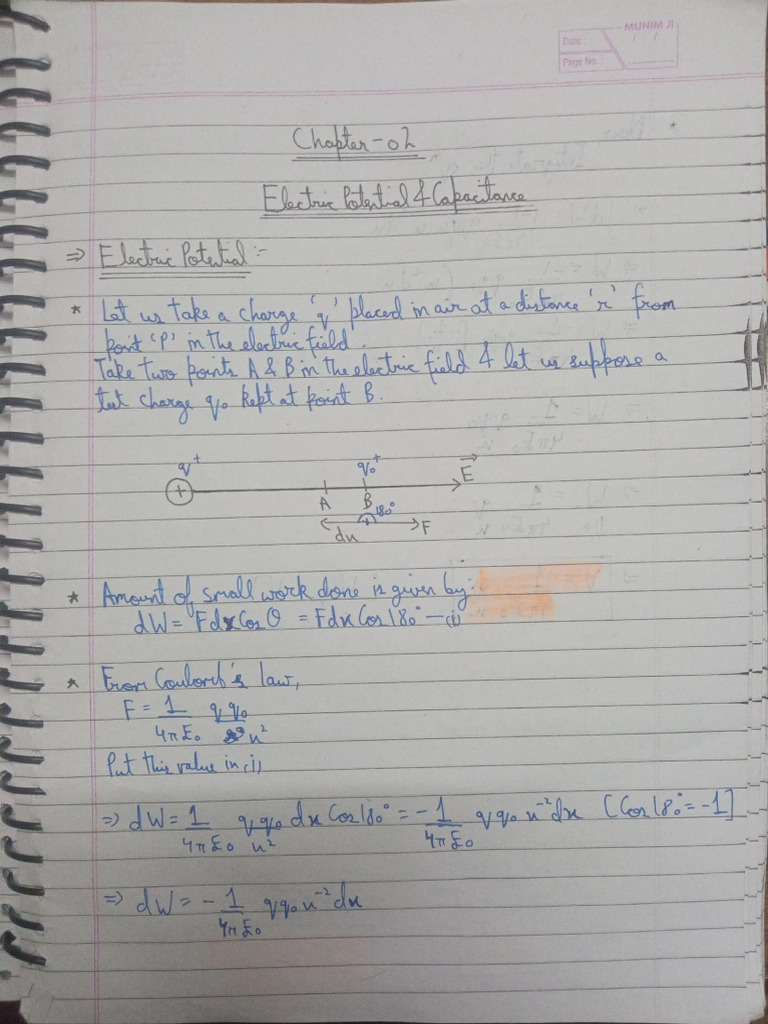 MUNIM JI
Date : / /
Page No. :
Chapter-02
Electric Potential & Capacitance
⇒ Electric Potential :-
* Let us take a charge 'q' placed in air at a distance 'r' from
point 'P' in the electric field.
Take two points A & B in the electric field & let us suppose a
test charge q₀ kept at point B.
q⁺ q₀⁺ E⃗
+ A B 180°
dx F
* Amount of small work done is given by:
dW = Fdx Cos θ = Fdx Cos 180° — (i)
* From Coulomb's law,
F = 1 q q₀
4πE₀ x²
Put this value in (i)
⇒ dW = 1 q q₀ dx Cos 180° = -1 q q₀ x⁻² dx [Cos 180° = -1]
4πE₀ x² 4πE₀
⇒ dW = - 1 q q₀ x⁻² dx
4πE₀